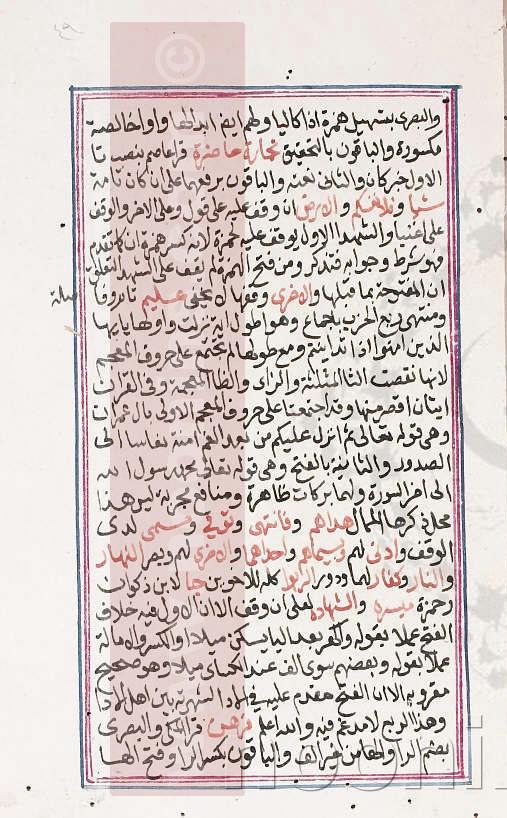 والبصري بتسهيل همزة اذا كاليا ولهم ايضا ابدالها واوا خالصة
مكسورة والباقون بالتحقيق تجارة حاضرة قرا عاصم بنصب تا
الاول خبر كان والثاني نعته والباقون برفعهما على ان كان تامة
شيا و والارض ان وقف عليه على قول وعلى الاخر والوقف
على اغنيا والشهدا الاول يوقف عليه لحمزة لانه كسر همزة ان كما تقدم
فهو شرط وجوابه فتذكر ومن فتح الهمزة فلم يقف على الشهدا لتعلق
ان المفتوحة بما قبلها والاخرى وقفها لا يخفى عليم تام وفا
صلة
ومنتهى ربع الحزب باجماع وهو اطول اية نزلت واولها يايها
الذين امنوا اذا تداينتم ومع طولها لم تجتمع على حروف المعجم
لانها نقصت الثا المثلثة والزاي والظا المعجمة وفي القران
ايتان اقصر منها وقد اجتمعتا على حروف المعجم الاولى بال عمران
وهي قوله تعالى ثم انزل عليكم من بعد الغم امنة نعاسا الى
الصدور والثانية بالفتح وهي قوله تعالى محمد رسول الله
الى اخر السورة ولهما بركات ظاهرة ومنافع مجربة ليس هذا
محل ذكرها الممال هداهم و فانتهى و توفى و مسمى لدى
الوقف و ادنى لهم و بسيماهم و احداهما والاخرى لهم وبصر النهار
والنار و كفار لهما ودور الربوا كله للاخوين جا لابن ذكوان
وحمزة ميسرة والشهادة لعلي ان وقف الا ان الاول فيه خلاف
الفتح عملا بقوله واكهر بعد اليا يسكن ميلا او الكسر والامالة
عملا بقوله وبعضهم سوى الف عند الكسائي ميلا وهو صحيح
مقروء به الا ان الفتح مقدم عليه
وهذا الربع لا مدغم فيه والله اعلم فرهن قرا المكي والبصري
بضم الرا والها من غير الف والباقون بكسر الرا وفتح الها